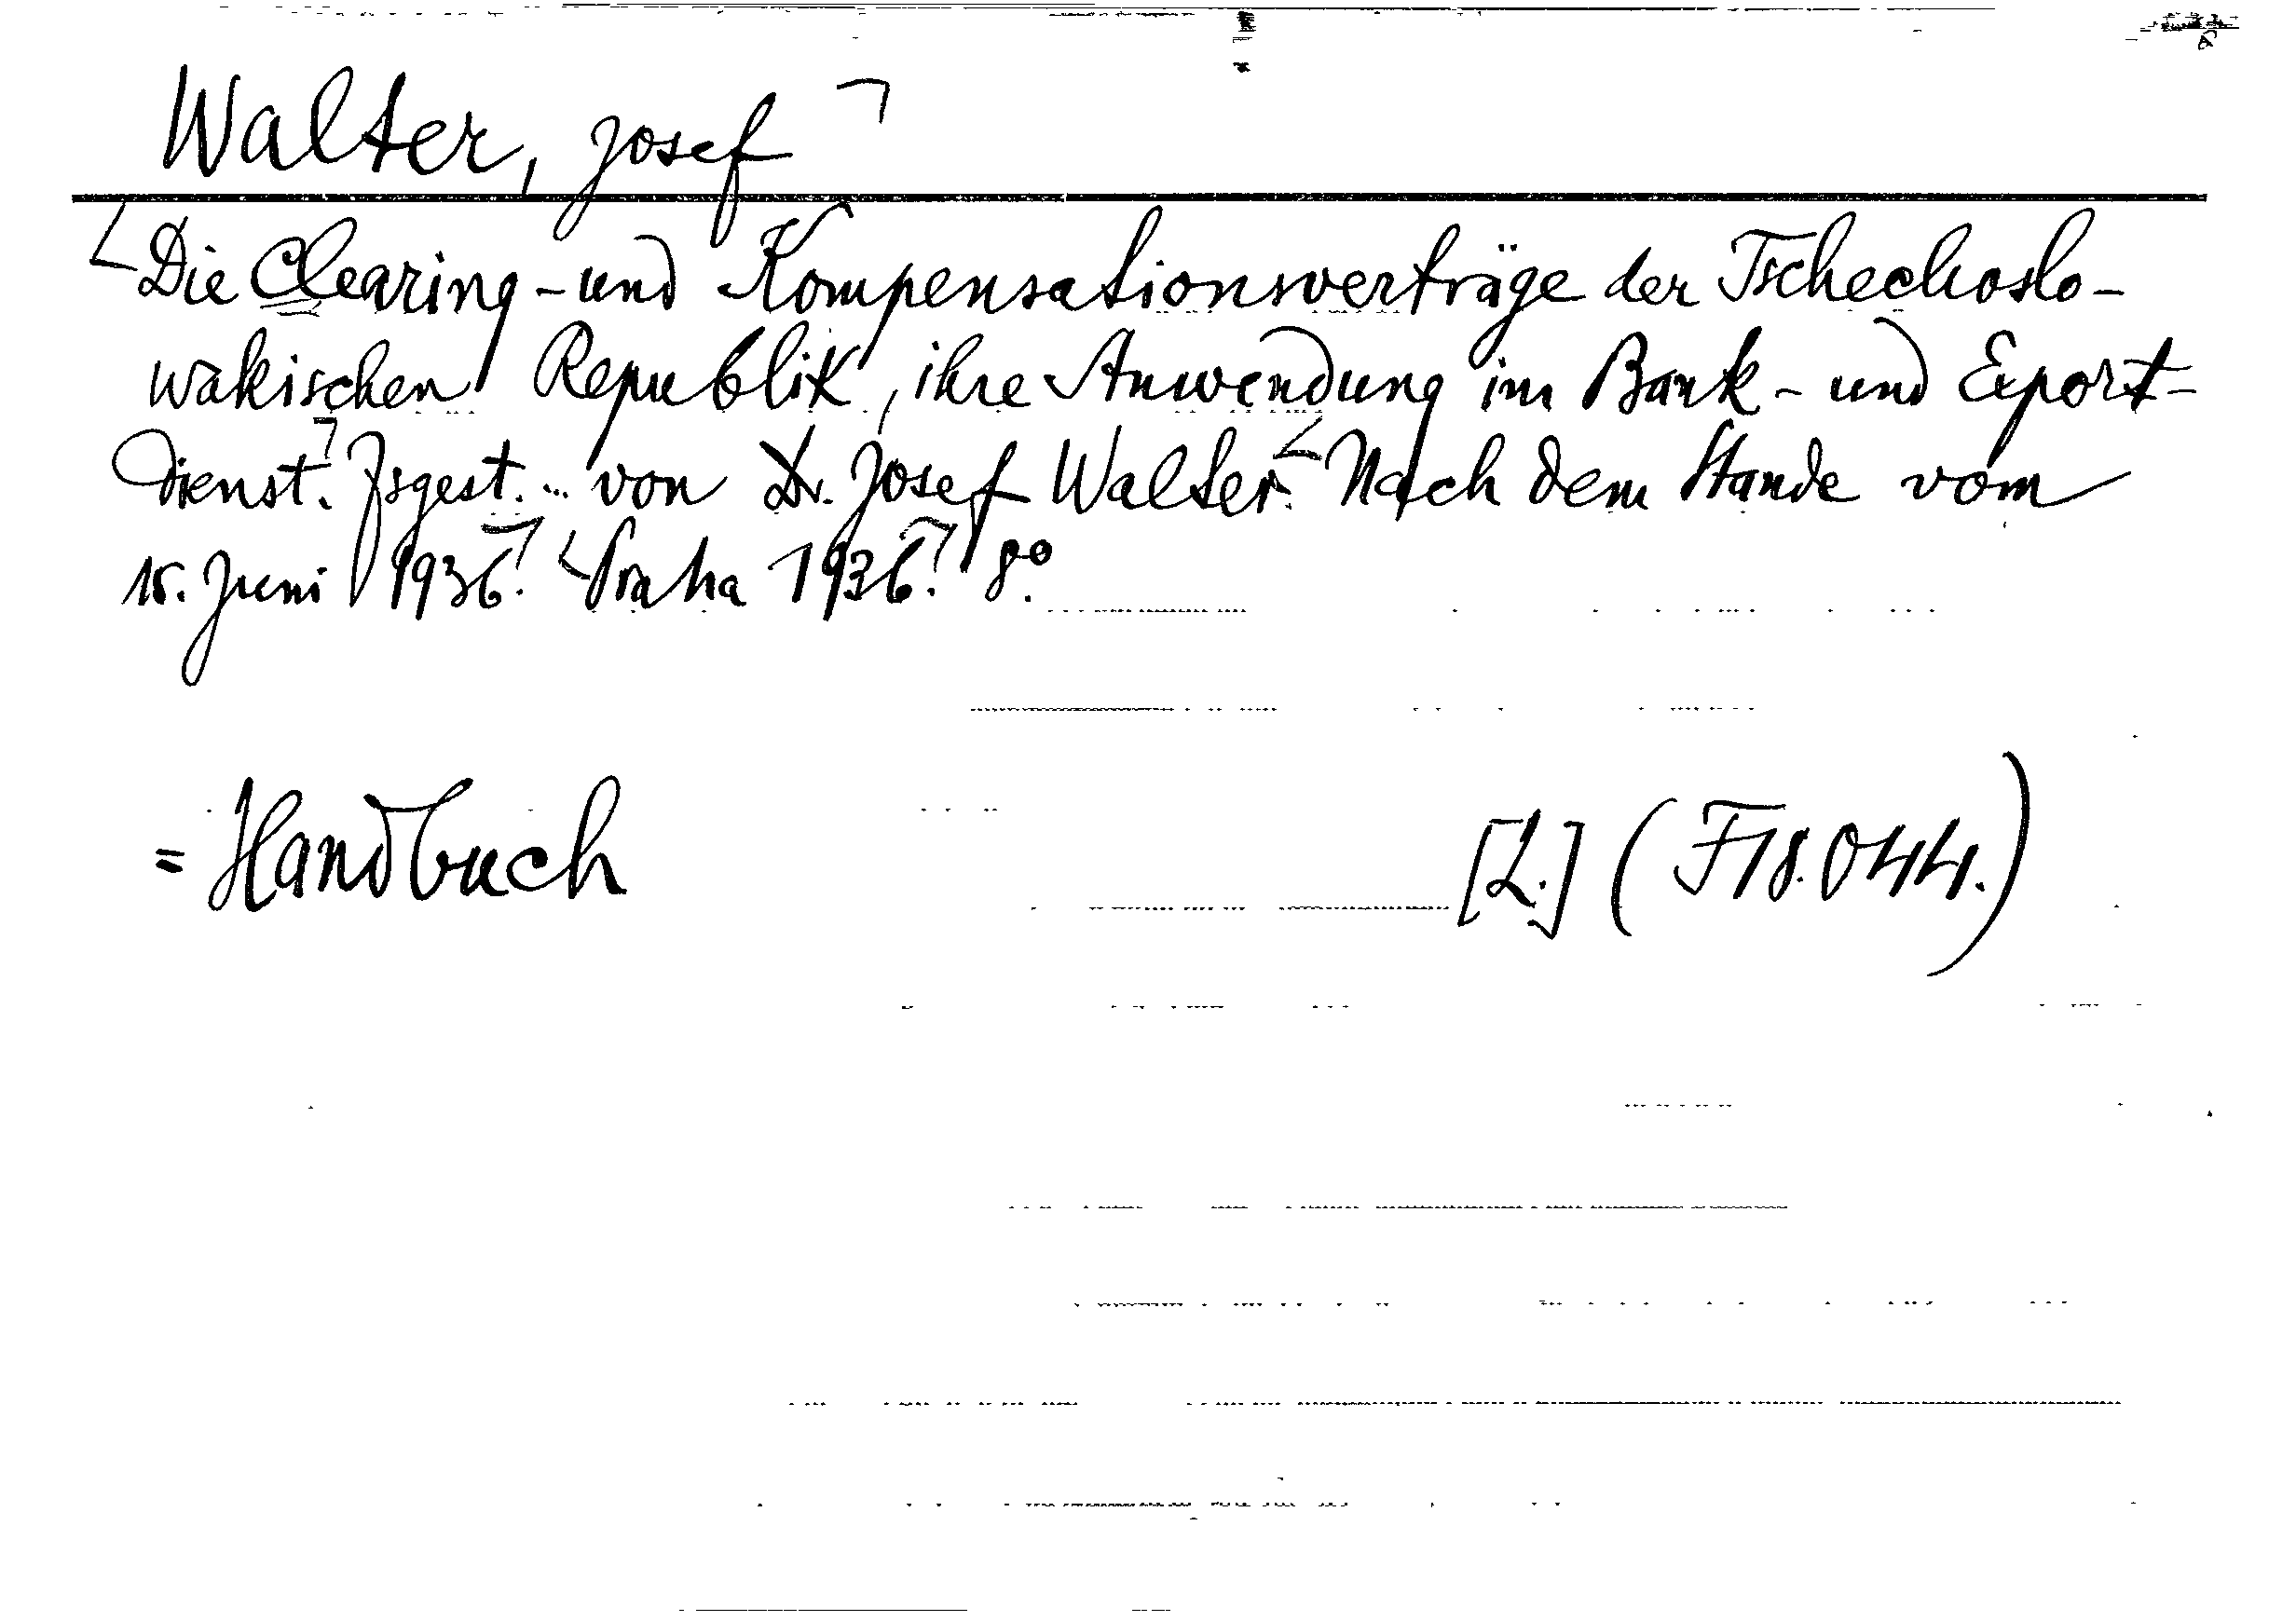 Walter, Josef
Die Clearing- und Kompensationsverträge der Tschechoslo-
wakischen Republik, ihre Anwendung im Bank- und Export-
dienst. Zsgest. ... von Dr. Josef Walter. Nach dem Stande vom
15. Juni 1936. Praha 1936. 8°.
= Handbuch [L.] (F18.044.)